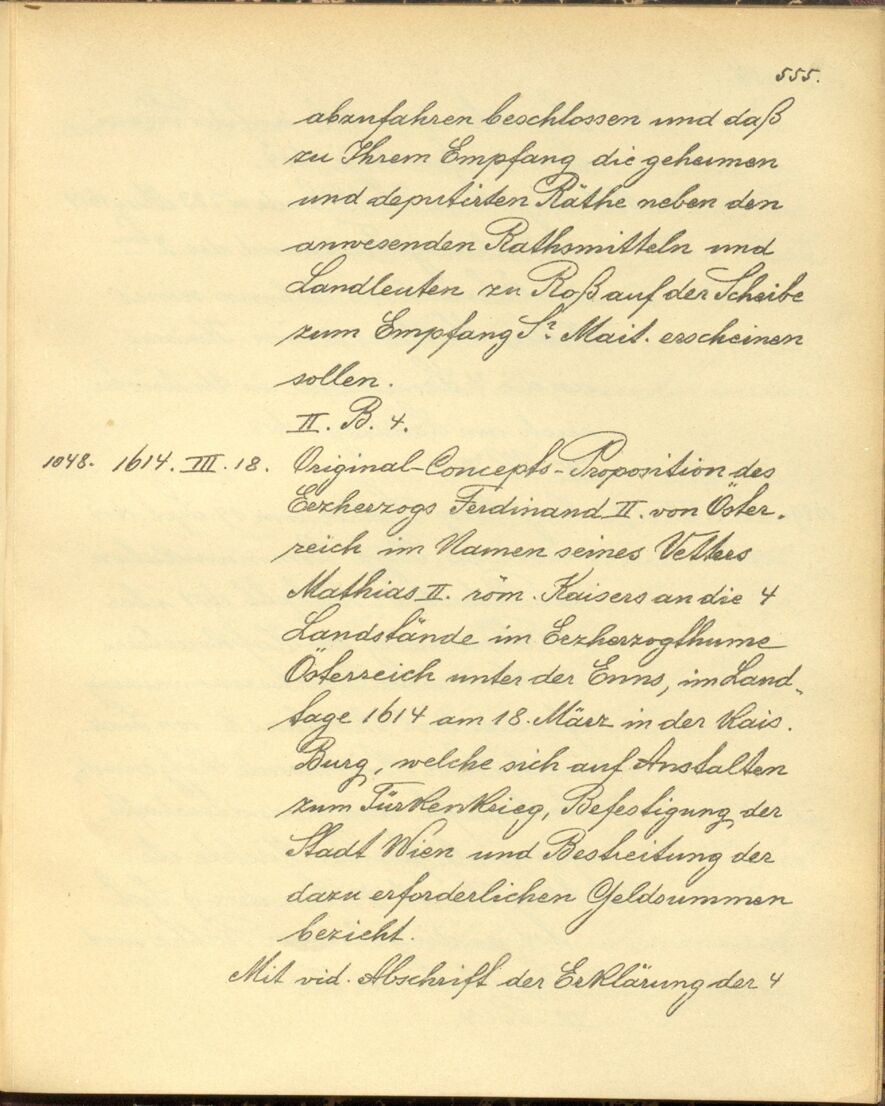 555.
abzufahren beschlossen und daß
zu Ihrem Empfang die geheimen
und deputirten Räthe neben den
anwesenden Rathsmitteln und
Landleuten zu Roß auf der Scheibe
zum Empfang Sr. Mait. erscheinen
sollen.
II. B. 4.
1048. 1614. III. 18. Original-Concepts-Proposition des
Erzherzogs Ferdinand II. von Öster-
reich im Namen seines Vetters
Mathias II. röm. Kaisers an die 4
Landstände im Erzherzogthume
Österreich unter der Enns, im Land-
tage 1614 am 18. März in der Kais.
Burg, welche sich auf Anstalten
zum Türkenkrieg, Befestigung der
Stadt Wien und Bestreitung der
dazu erforderlichen Geldsummen
bezieht.
Mit vid. Abschrift der Erklärung der 4